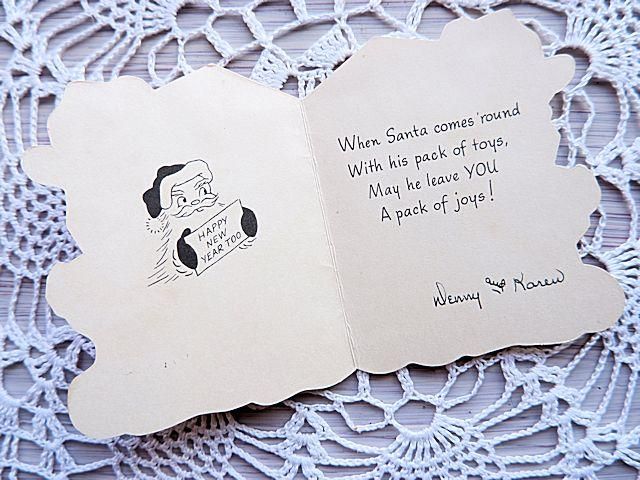 HAPPY
NEW
YEAR TOO
When Santa comes 'round
With his pack of toys,
May he leave YOU
A pack of joys!
Denny and Karen